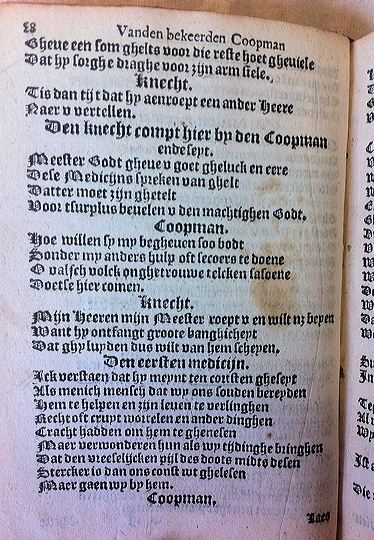 38
Vanden bekeerden Coopman
Gheue een som ghelts voor die reste hoet gheviele
Dat hy sorghe draghe voor zijn arm siele.
Knecht.
Tis dan tijt dat hy aenroept een ander Heere
Naer v vertellen.
Den knecht compt hier by den Coopman
ende seyt.
Meester Godt gheue v goet gheluck en eere
Dese Medicijns spreken van ghelt
Datter moet zijn ghetelt
Voort surplus beuelen v den machtighen Godt.
Coopman.
Hoe willen sy my begheuen soo bodt
Sonder my anders hulp oft secoers te doene
O valsch volck onghetrouwe telcken saisoene
Doetse hier comen.
Knecht.
Mijn Heeren mijn Meester roept v en wilt nz beyen
Want hy ontfangt groote banghicheyt
Dat ghy luyden dus wilt van hem scheyen.
Den eersten medicijn.
Ick verstaen dat hy meynt ten cortsten gheseyt
Als menich mensch dat wy ons souden bereyden
Hem te helpen en zijn leuen te verlinghen
Recht oft cruyt wortelen en ander dinghen
Cracht hadden om hem te ghenesen
Maer verwonderen hun als wy tijdinghe bringhen
Dat den vreeselijcken pijl des doots midts desen
Stercker is dan ons const wt ghelesen
Maer gaen wy by hem.
Coopman.
Laes